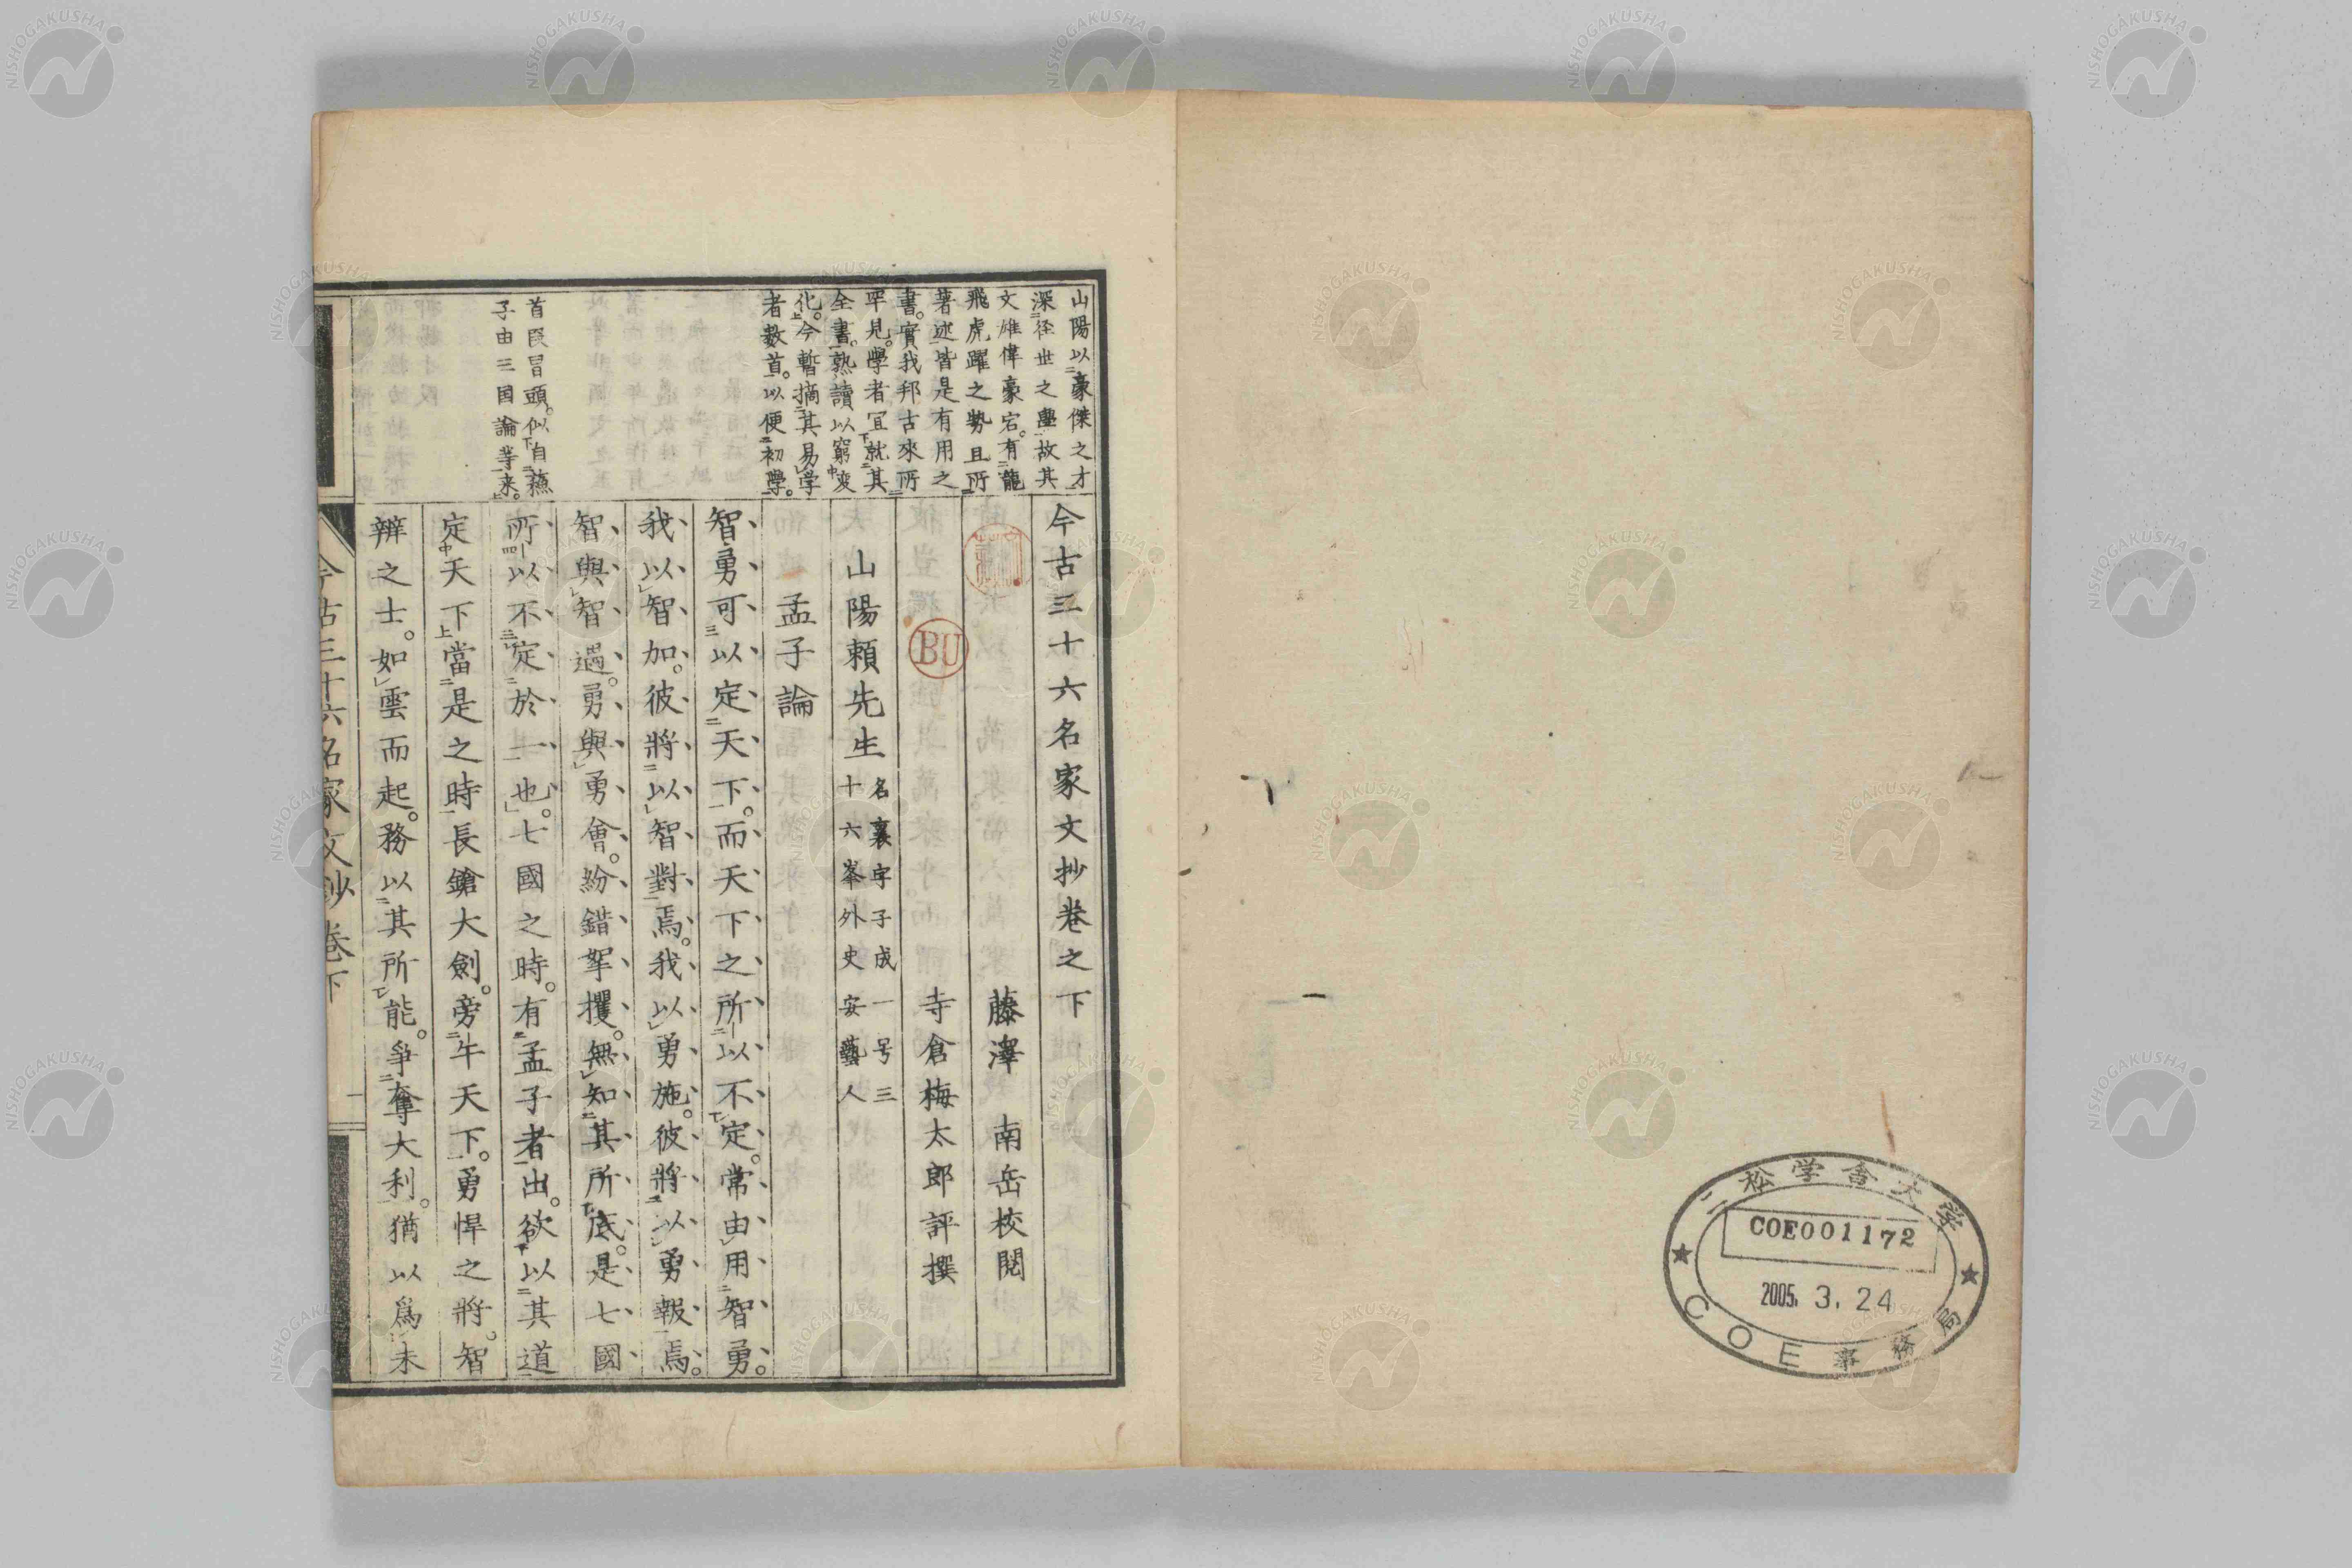 二松学舎大学
COE001172
2005. 3. 24
COE事務局
山陽以豪傑之才
深径世之學故其
文雄偉豪宕。有龍
飛虎躍之勢且所
著述皆是有用之
書。實我邦古來所
罕見。學者宜就其
全書。熟讀以窮変
化。今暫摘其易学
者数首。以便初學。
首段冒頭。似自蘇
子由三国論等来。
今古三十六名家文抄卷之下
藤澤南岳校閲
寺倉梅太郎評撰
BU
山陽頼先生 名襄字子成一号三
十六峯外史安藝人
孟子論
智勇可以定天下。而天下之所以不定。常由用智勇。
我以智加。彼將以智對焉。我以勇施。彼將以勇報焉。
智與智遇。勇與勇會。紛錯拏攫。無知其所底。是七國
所以不定於一也。七國之時。有孟子者出。欲以其道
定天下當是之時長鎗大劍。旁午天下。勇悍之將。智
辨之士。如雲而起。務以其所能。爭奪大利。猶以爲未
今古三十六名家文鈔卷下
一
NISHOGAKUSHA